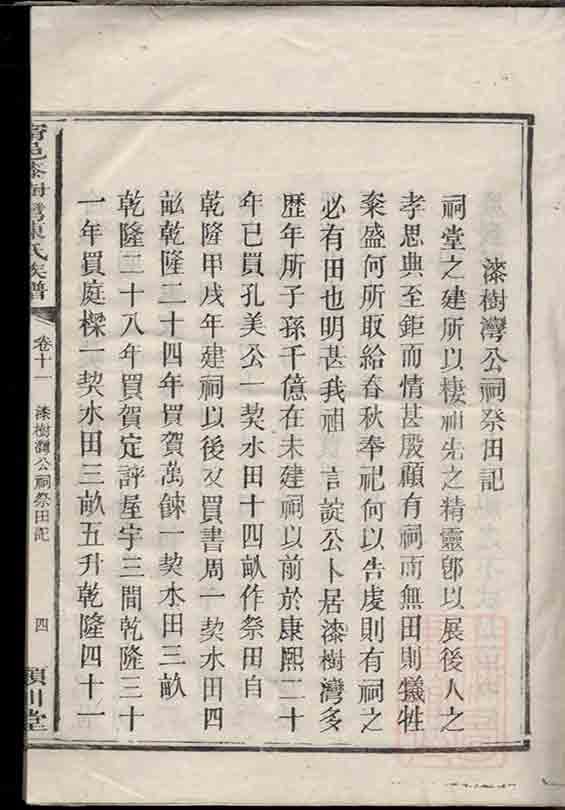 漆樹灣公祠祭田記
祠堂之建所以棲祖先之精靈卽以展後人之
孝思典至鉅而情甚殷顧有祠而無田則犧牲
粢盛何所取給春秋奉祀何以告虔則有祠之
必有田也明甚我祖 言諚公卜居漆樹灣多
歷年所子孫千億在未建祠以前於康熙二十
年已買孔美公一契水田十四畝作祭田自
乾隆甲戌年建祠以後又買書周一契水田四
畝乾隆二十四年買賀萬鍊一契水田三畝
乾隆二十八年買賀定評屋宇三間乾隆三十
一年買庭樑一契水田三畝五升乾隆四十一
甯邑漆樹灣陳氏族譜
卷十一
漆樹灣公祠祭田記
四
潁川堂